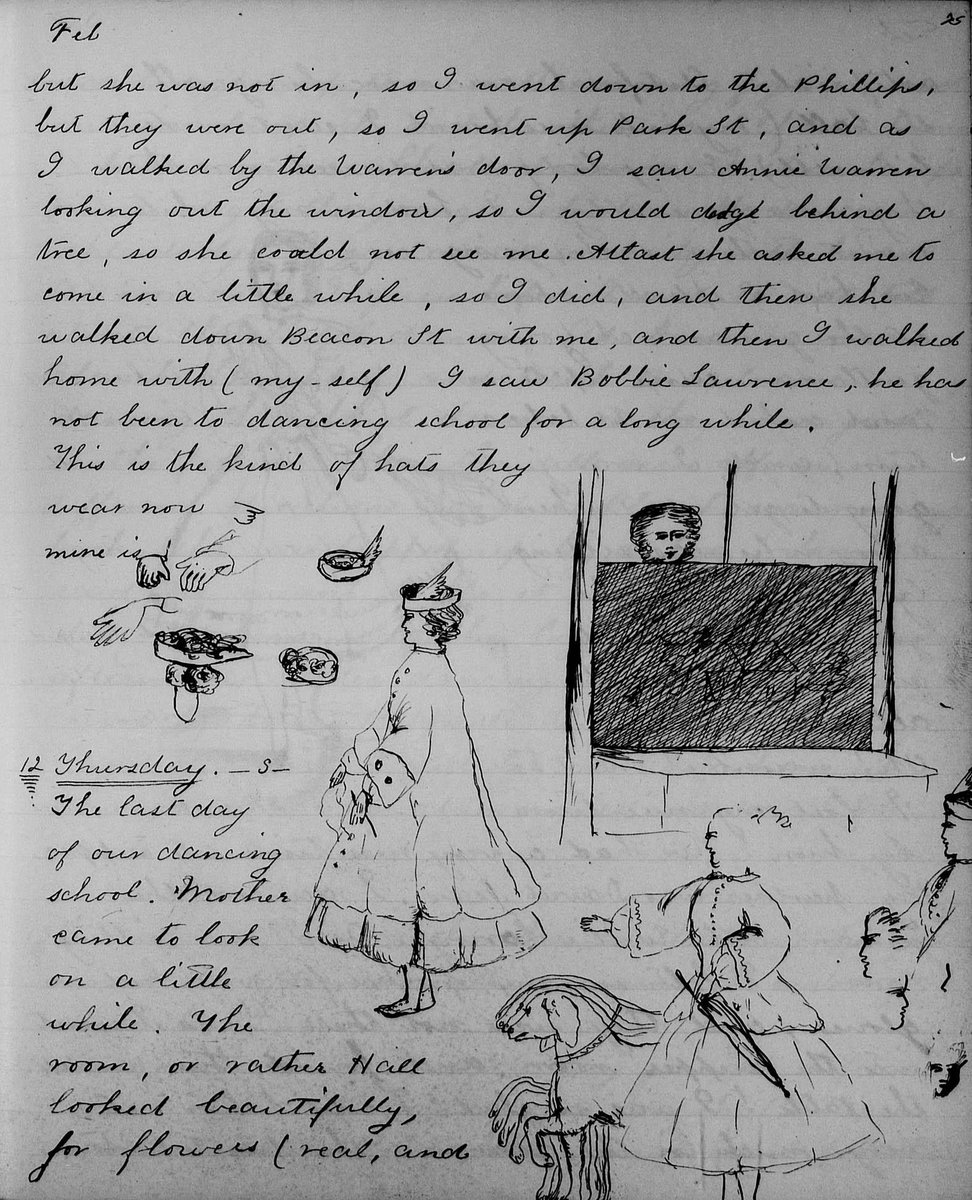 Feb
25
but she was not in, so I went down to the Phillips,
but they were out, so I went up Park St, and as
I walked by the Warren's door, I saw Annie Warren
looking out the window, so I would dodge behind a
tree, so she could not see me. Atlast she asked me to
come in a little while, so I did, and then she
walked down Beacon St with me, and then I walked
home with (my-self) I saw Bobbie Lawrence, he has
not been to dancing school for a long while.
This is the kind of hats they
wear now
mine is
12 Thursday. -S-
The last day
of our dancing
school. Mother
came to look
on a little
while. The
room, or rather Hall
looked beautifully,
for flowers (real, and